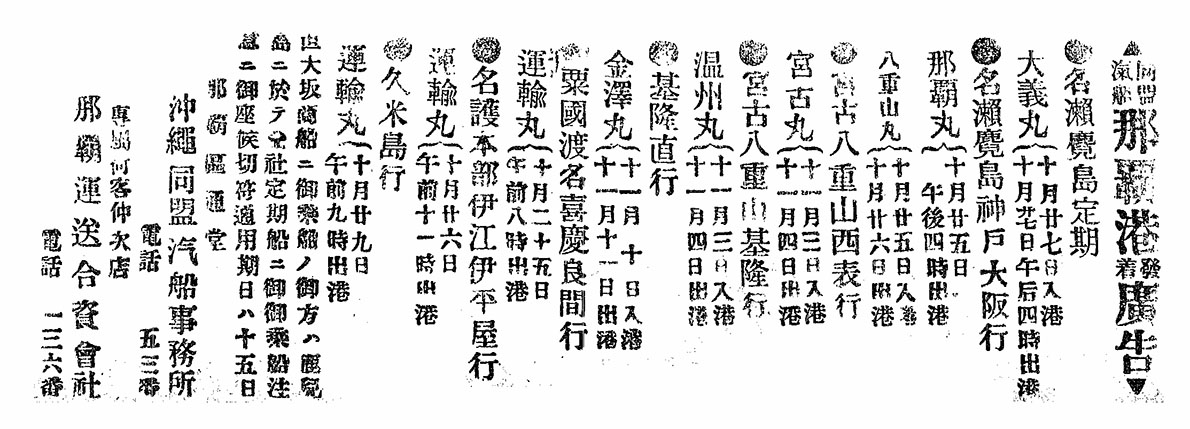 ▲同盟汽船那覇港發着廣告▼
●名瀬鹿兒島定期
大義丸 十月廿七日入港
十月廿七日午后四時出港
●名瀬鹿兒島神戸大阪行
那覇丸 十月廿五日
午後四時出港
●宮古八重山西表行
八重山丸 十月廿五日入港
十月廿六日出港
●宮古八重山基隆行
宮古丸 十一月三日入港
十一月四日出港
温州丸 十一月三日入港
十一月四日出港
●基隆直行
金澤丸 十一月十日入港
十一月十一日出港
●粟國渡名喜慶良間行
運輸丸 十月二十五日
午前八時出港
●名護本部伊江伊平屋行
運輸丸 十月廿六日
午前十一時出港
●久米島行
運輸丸 十月廿九日
午前九時出港
大坂商船ニ御乘船ノ御方ハ鹿兒
島ニ於テ會社定期船ニ御乘船注
意ニ御座候切符通用期日ハ十五日
那覇區通堂
沖繩同盟汽船事務所
電話 五三番
專屬荷客仲次店
那覇運送合資會社
電話 一三六番